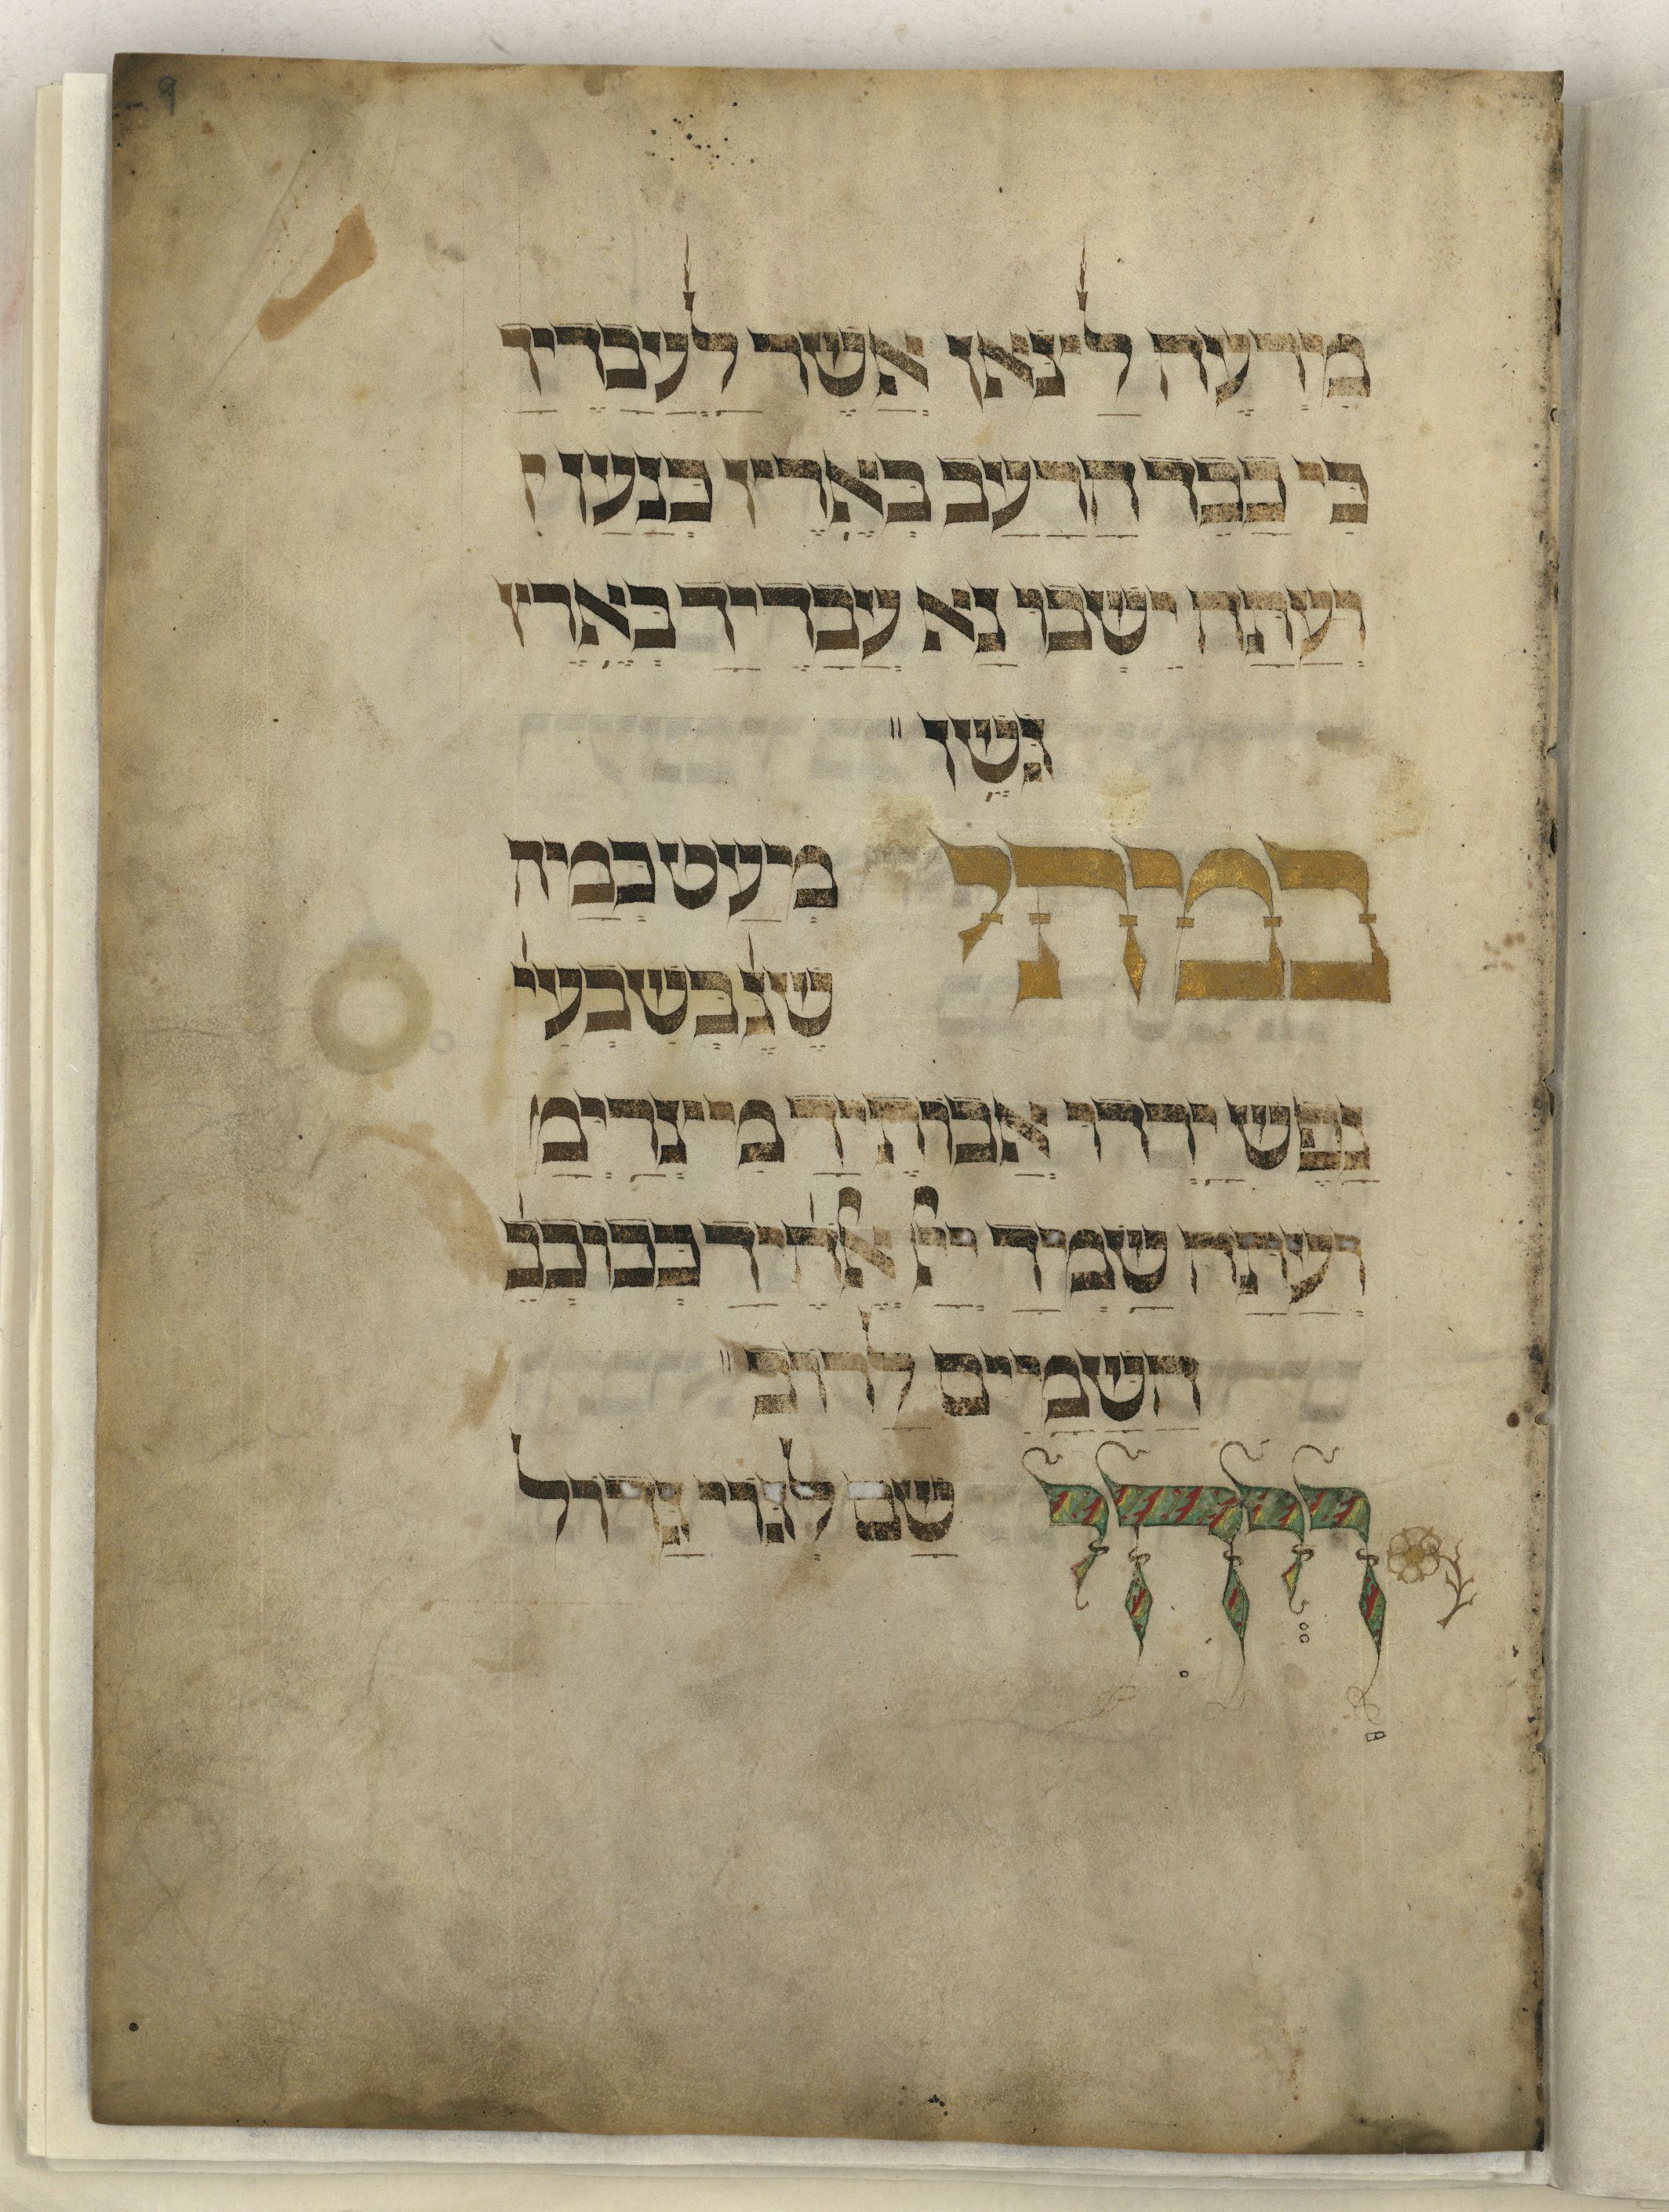 9
מרעה לצאן אשר לעבדיך
כי כבד הרעב בארץ כנען
ועתה ישבו נא עבדיך בארץ
גשן "
במתי מעט כמה
שנ' בשבעי'
נפש ירדו אבותיך מצרימ
ועתה שמך יי אלהיך ככוכב'
השמים לרוב "
ויהי שם לגוי גדול